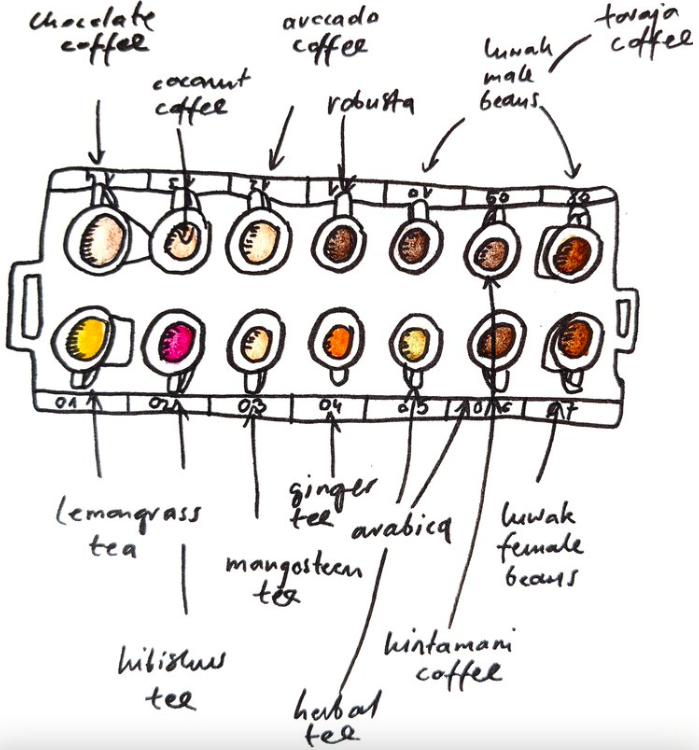 chocolate
coffee
avocado
coffee
toraja
coffee
luwak
male
beans
coconut
coffee
robusta
14
13
12
11
10
09
08
01
02
03
04
05
06
07
lemongrass
tea
ginger
tee
arabica
luwak
female
beans
mangosteen
tea
hibiskus
tee
kintamani
coffee
herbal
tee